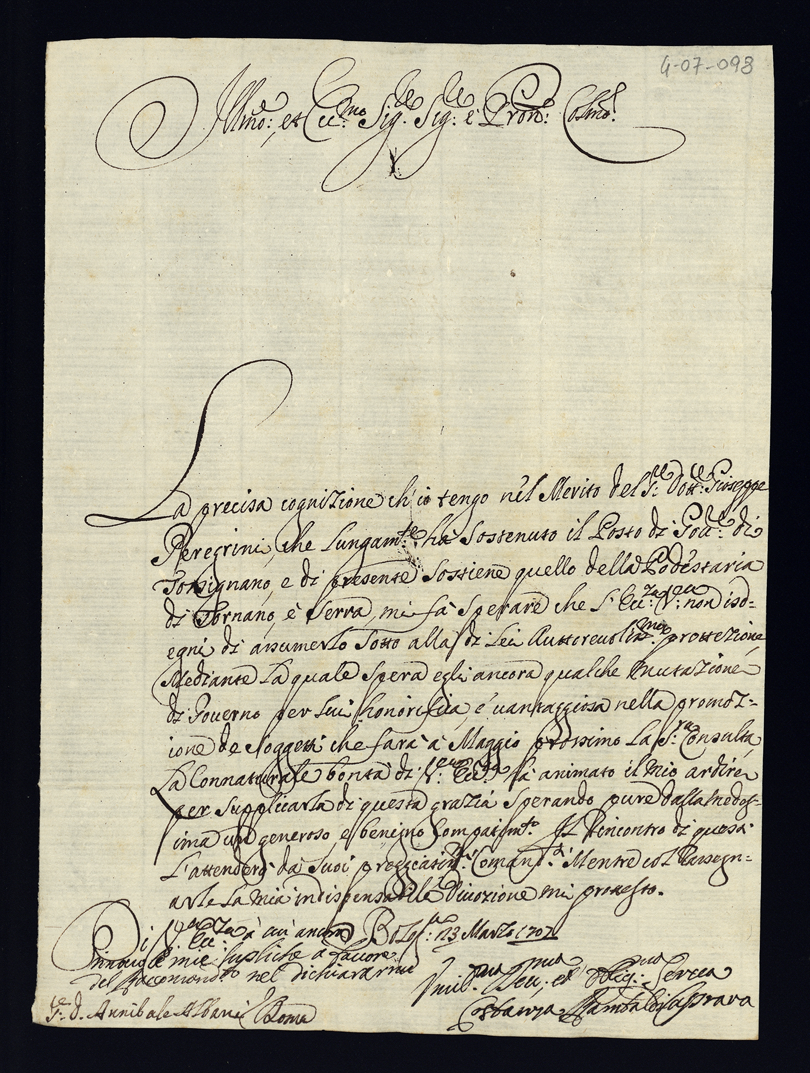 4-07-093
Illmo: et Ecc:mo Sig:re Sig:re e Pron: Colmo:
La precisa cognizione ch'io tengo nel Merito del S:re Dott:re Giuseppe
Peregrini, che lungam:te ha sostenuto il Posto di Gov:re di
Tossignano, e di presente sostiene quello della Podestaria
di Tornano, e Serra, mi fà sperare che l'Ecc:za V:ra non isd-
egni di assumerlo sotto alla di Lei Auttorevoliss:ma prottezione,
Mediante la quale spera egli ancora qualche mutazione
di Governo per lui honorifica, e vantaggiosa nella promoz-
ione de Soggetti che farà à Maggio prossimo la S:ra Consulta
La Connatturale bontà di V:ra Ecc:za hà animato il mio ardire
per supplicarla di questa grazia sperando pure dalla medes-
ima un generoso, e benigno Compatim:to. Il Rincontro di questa
l'attenderò da suoi preggiatiss:mi Comand:i Mentre col Rassegn-
arle la mia indispensabile Divozione mi protesto.
Di V:ra Ecc:za à cui ancora Bolog:a 13 Marzo 1707
innovo le mie suppliche à favore
del Racomandato nel dichiararmi
Umil:ma Dev:ma et Oblig:ma Serva
S:re D. Annibale Albani Roma
Costanza